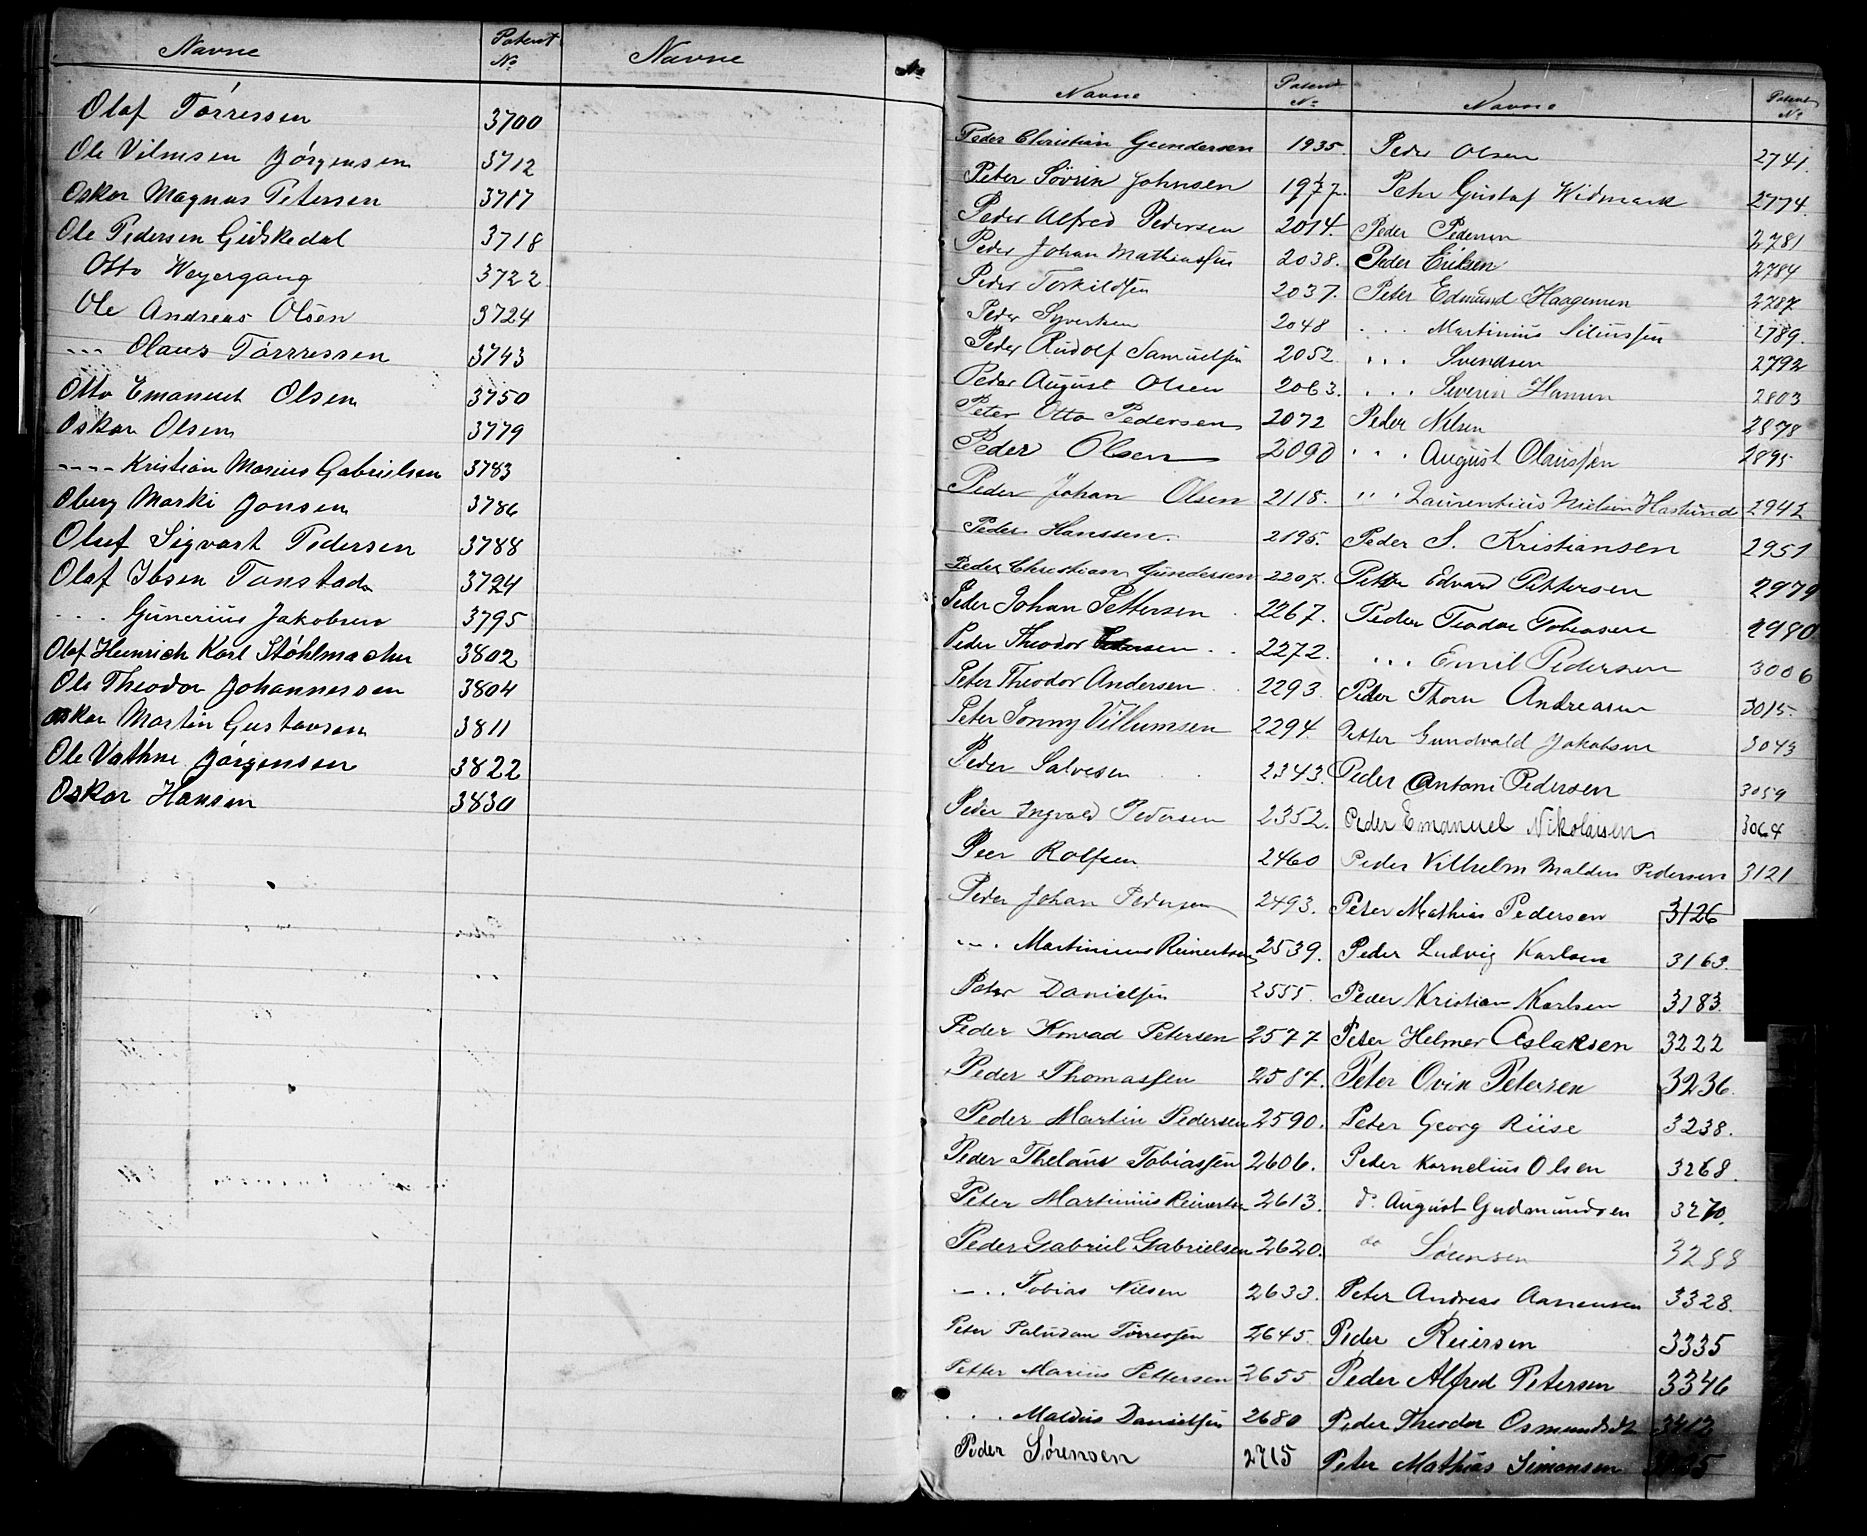 Navne Patent No Navne No
Olaf Tórressen 3700
Ole Vilmsen Jórgensen 3712
Oskar Magnus Petersen 3717
Ole Pedersen Gidskedal 3718
Otto Weyergang 3722
Ole Andreas Olsen 3724
... Olaus Tórrressen 3743
Otto Emanuel Olsen 3750
Oskar Olsen 3779
---- Kristian Marius Gabrielsen 3783
Oberg Marki Jonsen 3786
Oluf Sigvart Pedersen 3788
Olaf Ibsen Tonstad 3794
... Gunerius Jakobsen 3795
Olaf Heinrich Karl Stóhlmacher 3802
Ole Theodor Johannessen 3804
Oskar Martin Gustavsen 3811
Ole Vathne Jórgensen 3822
Oskar Hansen 3830
Navne Patent No
Peder Christian Gundersen 1935.
Peter Sövrin Johnsen 1977.
Peder Alfred Pedersen 2014.
Peder Johan Mathiassen 2038.
Peder Torkildsen 2037.
Peder Syvertsen 2048
Peder Rudolf Samuelsen 2052
Peder August Olsen 2063.
Peter Otto Pedersen 2072
Peder Olsen 2090
Peder Johan Olsen 2118.
Peder Hanssen 2195.
Peder Christian Gundersen 2207.
Peder Johan Pettersen 2267.
Peder Theodor 2272.
Peter Theodor Andersen 2293.
Peter Jonny Villumsen 2294.
Peder Salvesen 2343.
Peder Ingvald Pedersen 2352.
Peer Rolfsen 2460
Peder Johan Pedersen 2493.
... Martinius Reinertsen 2539.
Peter Danielsen 2555.
Peder Konrad Petersen 2577
Peder Thomassen 2587.
Peder Martin Pedersen 2590.
Peder Thelaus Tobiassen 2606.
Peter Martinius Reinertsen 2613.
Peder Gabriel Gabrielsen 2620.
... Tobias Nilsen 2633.
Peter Paludan Tórressen 2645.
Petter Marius Pettersen 2655
... Maldus Danielsen 2680
Peder Sørensen 2715
Navne Patent No
Peder Olsen 2741.
Petr Gustaf Widmark 2774.
Peder Pedersen 2781
Peder Eriksen 2784
Peter Edmund Haagensen 2787
... Martinius 2789.
... Svendsen 2792
... Severin Hansen 2803
Peder Nilsen 2878
... August Olaussen 2895
... Laurentius Nielsen Haslund 2942
Peder S. Kristiansen 2951
Petter Edvard Pettersen 2979
Peder Teodor Tobiasen 2980
... Emil Pedersen 3006
Peder Thorn Andreasen 3015.
Petter Gundvald Jakobsen 3043
Peder Antoni Pedersen 3059
Peder Emanuel Nikolaisen 3064
Peder Vilhelm Maldus Pedersen 3121
Peter Mathias Pedersen 3126
Peder Ludvig Karlsen 3163.
Peder Kristian Karlsen 3183
Peter Helmer Aslaksen 3222
Peter Ovin Petersen 3236.
Peter Georg Riise 3238.
Peder Kornelius Olsen 3268.
do August Gudmundsen 3270.
do Sørensen 3288
Peter Andreas Aanensen 3328.
Peder Reiersen 3335
Peder Alfred Petersen 3346
Peder Theodor Osmundsdt 3412
Peter Mathias Simonsen